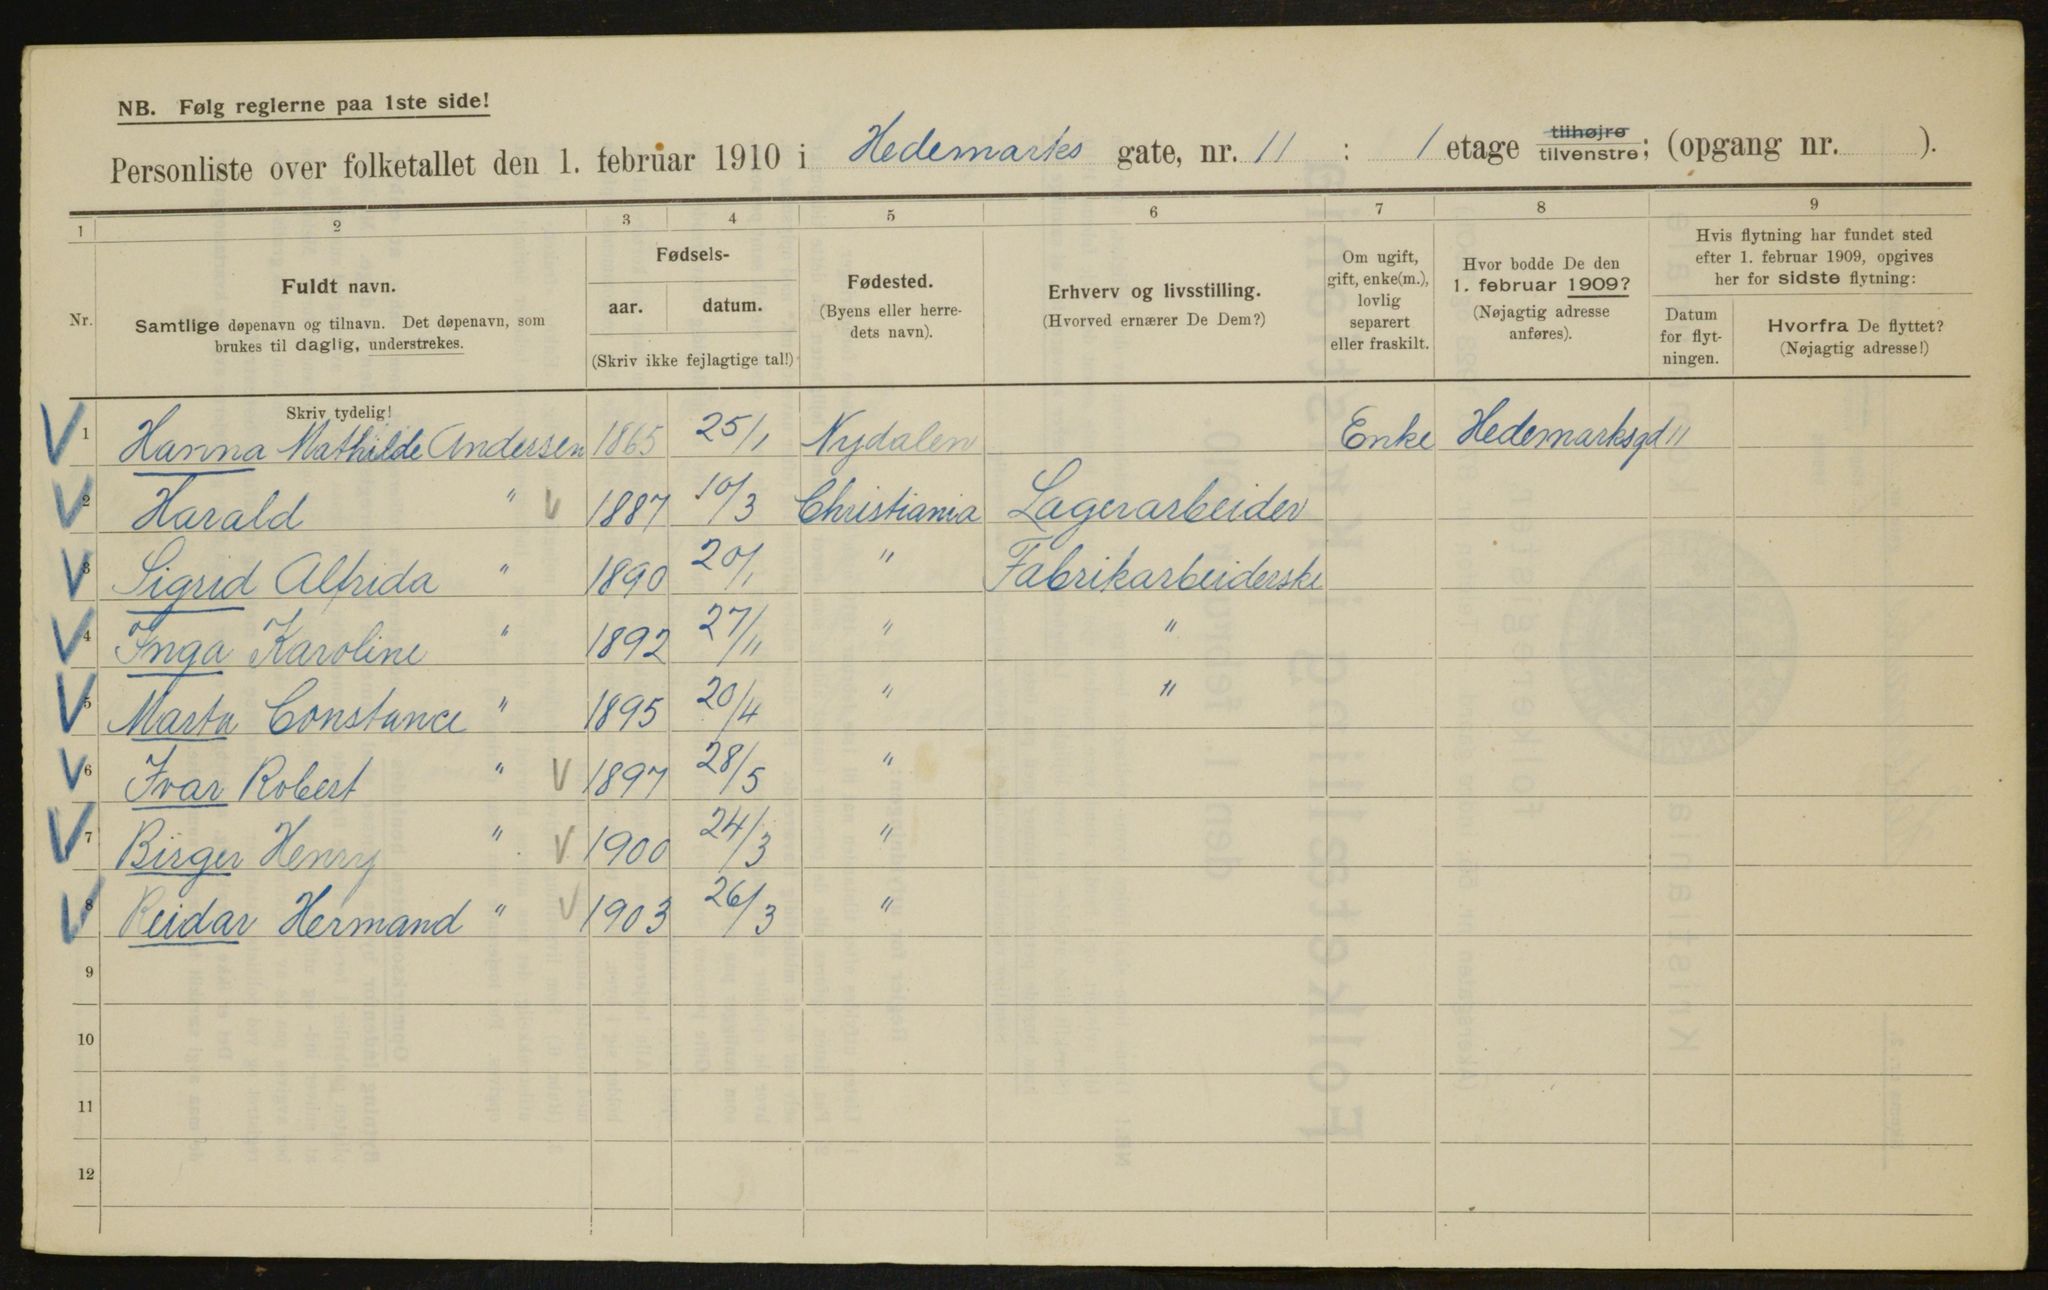 NB. Følg reglerne paa 1ste side!
Personliste over folketallet den 1. februar 1910 i Hedemarks gate, nr. 11 : 1 etage tilhøjre tilvenstre; (opgang nr. ).
1 2 3 4 5 6 7 8 9
Nr.
Fuldt navn.
Samtlige døpenavn og tilnavn. Det døpenavn, som
brukes til daglig, understrekes.
Fødsels-
aar. datum.
(Skriv ikke fejlagtige tal!)
Fødested.
(Byens eller herre-
dets navn).
Erhverv og livsstilling.
(Hvorved ernærer De Dem?)
Om ugift,
gift, enke(m.),
lovlig
separert
eller fraskilt.
Hvor bodde De den
1. februar 1909?
(Nøjagtig adresse
anføres).
Hvis flytning har fundet sted
efter 1. februar 1909, opgives
her for sidste flytning:
Datum
for flyt-
ningen.
Hvorfra De flyttet?
(Nøjagtig adresse!)
Skriv tydelig!
V 1 Hanna Mathilde Andersen 1865 25/1 Nydalen Enke Hedemarksgd 11
V 2 Harald " V 1887 10/3 Christiania Lagerarbeider
V 3 Sigrid Alfrida " 1890 20/1 " Fabrikarbeiderske
V 4 Inga Karoline " 1892 27/11 " "
V 5 Marta Constance " 1895 20/4 " "
V 6 Ivar Robert " V 1897 28/5 "
V 7 Birger Henry " V 1900 24/3 "
V 8 Reidar Hermand " V 1903 26/3 "
9
10
11
12